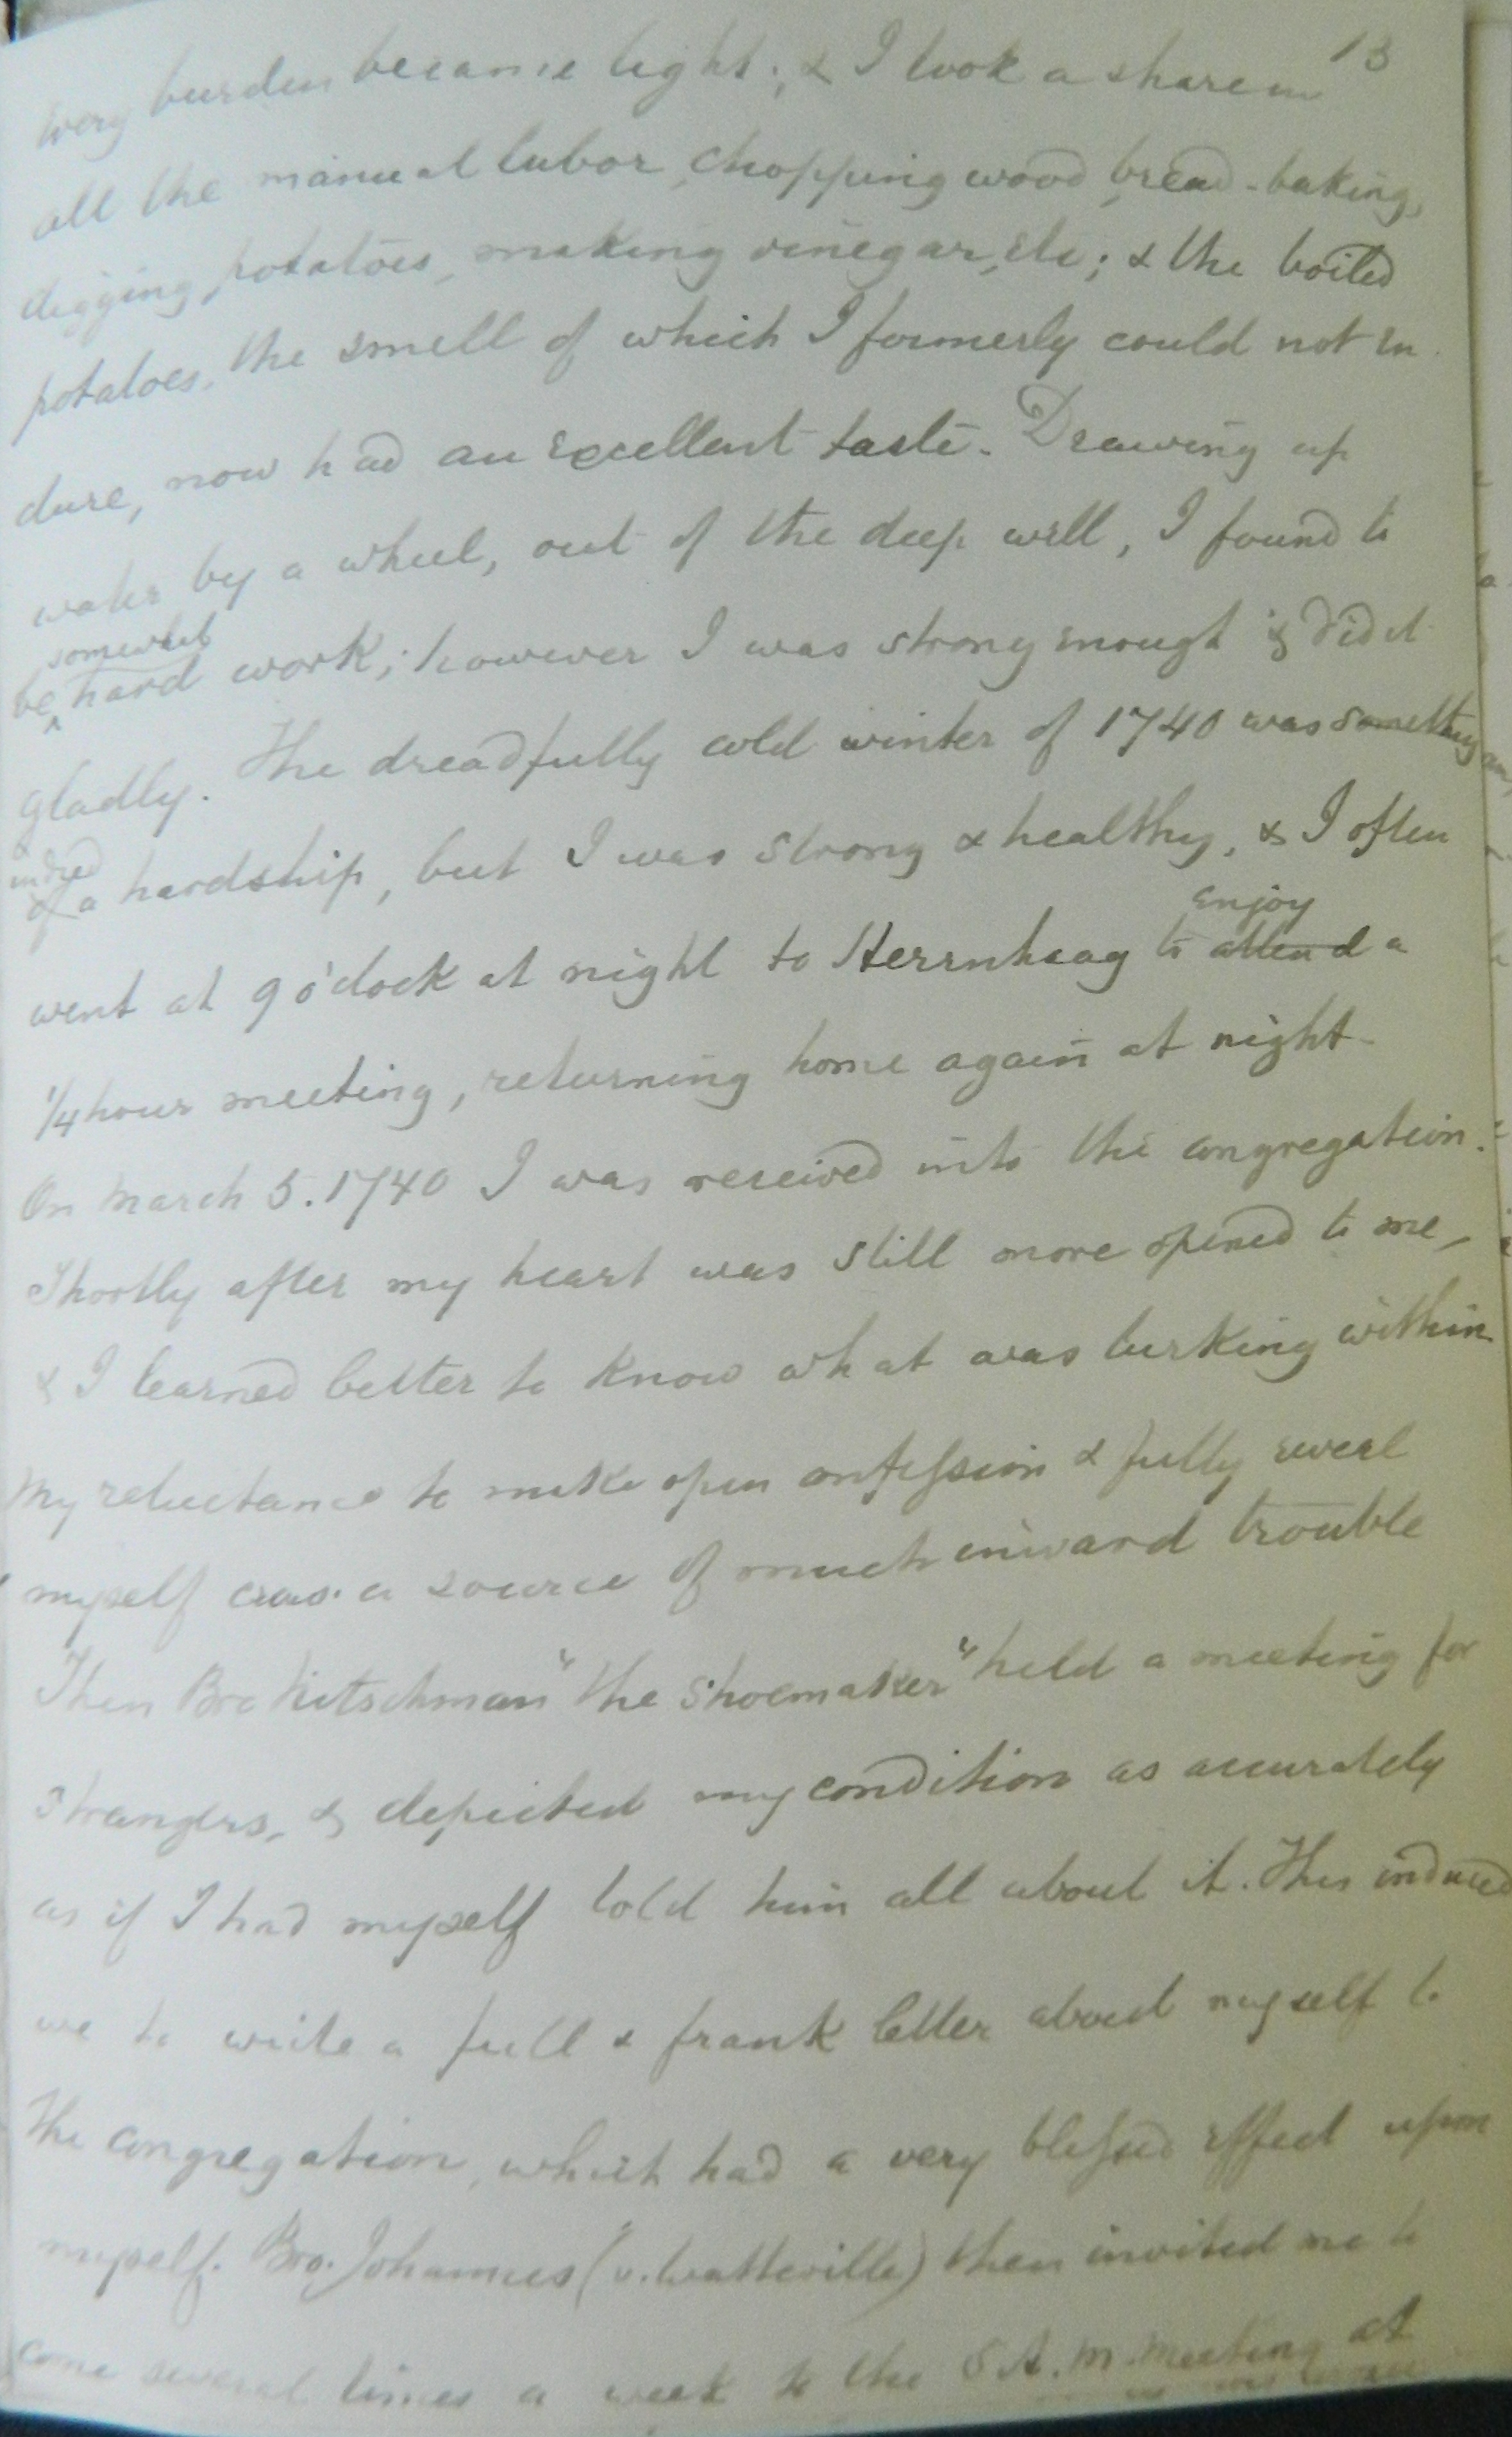 13
every burden became light; & I took a share in
all the manual labor, chopping wood, bread-baking,
digging potatoes, making vinegar, etc; & the boiled
potatoes, the smell of which I formerly could not en
dure, now had an excellent taste. Drawing up
water by a wheel, out of the deep well, I found to
somewhat
be ^ hard work; however I was strong enough & did it
gladly. The dreadfully cold winter of 1740 was something
indeed
of a hardship, but I was strong & healthy, & I often
enjoy
went at 9 o'clock at night to Herrnhaag to attend a
1/4 hour meeting, returning home again at night.
On March 5. 1740 I was received into the congregation.
Shortly after my heart was still more opened to me,
& I learned better to know what was lurking within
My reluctance to make open confession & fully reveal
myself was a source of much inward trouble
Then Bro Nitschman "the shoemaker" held a meeting for
strangers, & depicted my condition as accurately
as if I had myself told him all about it. This induced
me to write a full & frank letter about myself to
the congregation, which had a very blessed effect upon
myself. Bro. Johannes (v. Watteville) then invited me to
come several times a week to the 5 A.M. meeting at